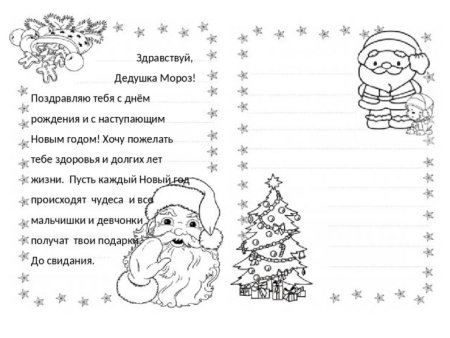 Здравствуй,
Дедушка Мороз!
Поздравляю тебя с днём
рождения и с наступающим
Новым годом! Хочу пожелать
тебе здоровья и долгих лет
жизни. Пусть каждый Новый год
происходят чудеса и все
мальчишки и девчонки
получат твои подарки.
До свидания.